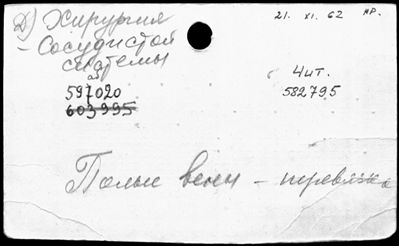 Д) Хирургия
21. XI. 62 нр.
- Сосудистой
системы
Чит.
597020
582795
603995
Полые вены - перевязка